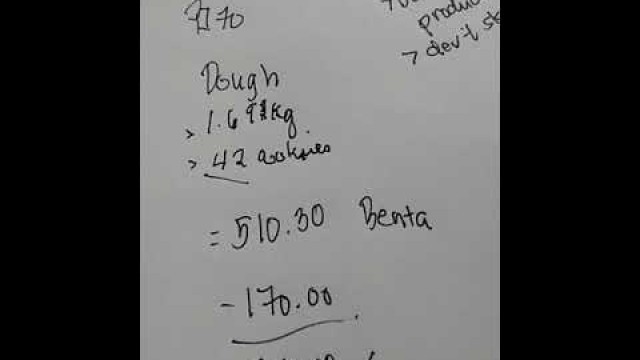 70
produ
> dev't st
Dough
> 1.6 kg.
> 42 cookies
= 510.30 Benta
- 170.00